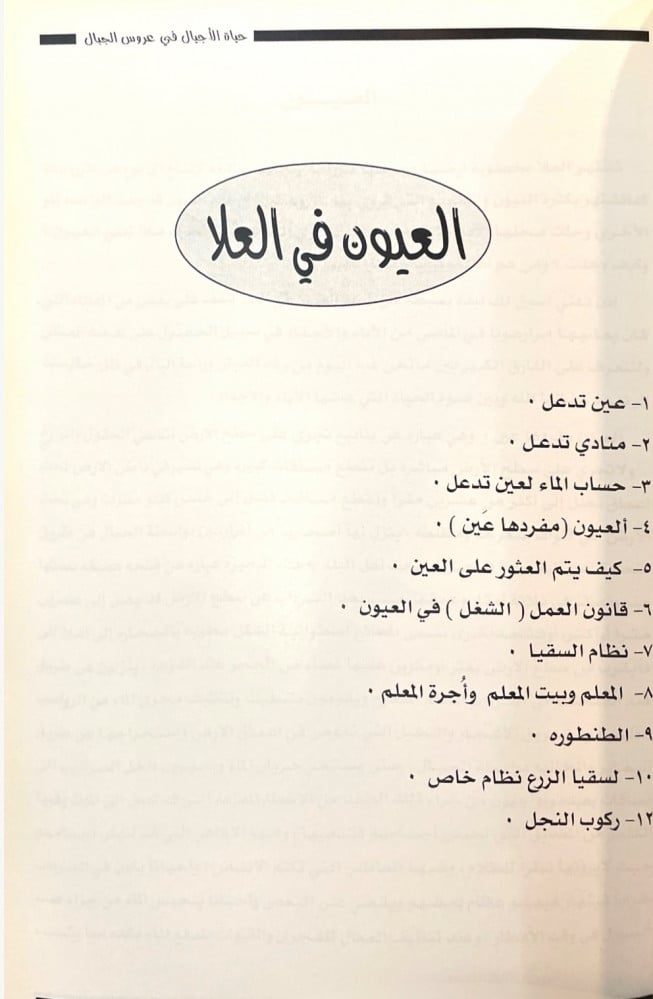 حياة الأجيال في عروس الجبال
العيون في العلا
١- عين تدعل ٠
٢- منادي تدعل ٠
٣- حساب الماء لعين تدعل ٠
٤- ألعيون (مفردها عَين ) ٠
٥- كيف يتم العثور على العين ٠
٦- قانون العمل ( الشغل ) في العيون ٠
٧- نظام السقيا ٠
٨- المعلم وبيت المعلم وأُجرة المعلم ٠
٩- الطنطوره ٠
١٠- لسقيا الزرع نظام خاص ٠
١٢- ركوب النجل ٠